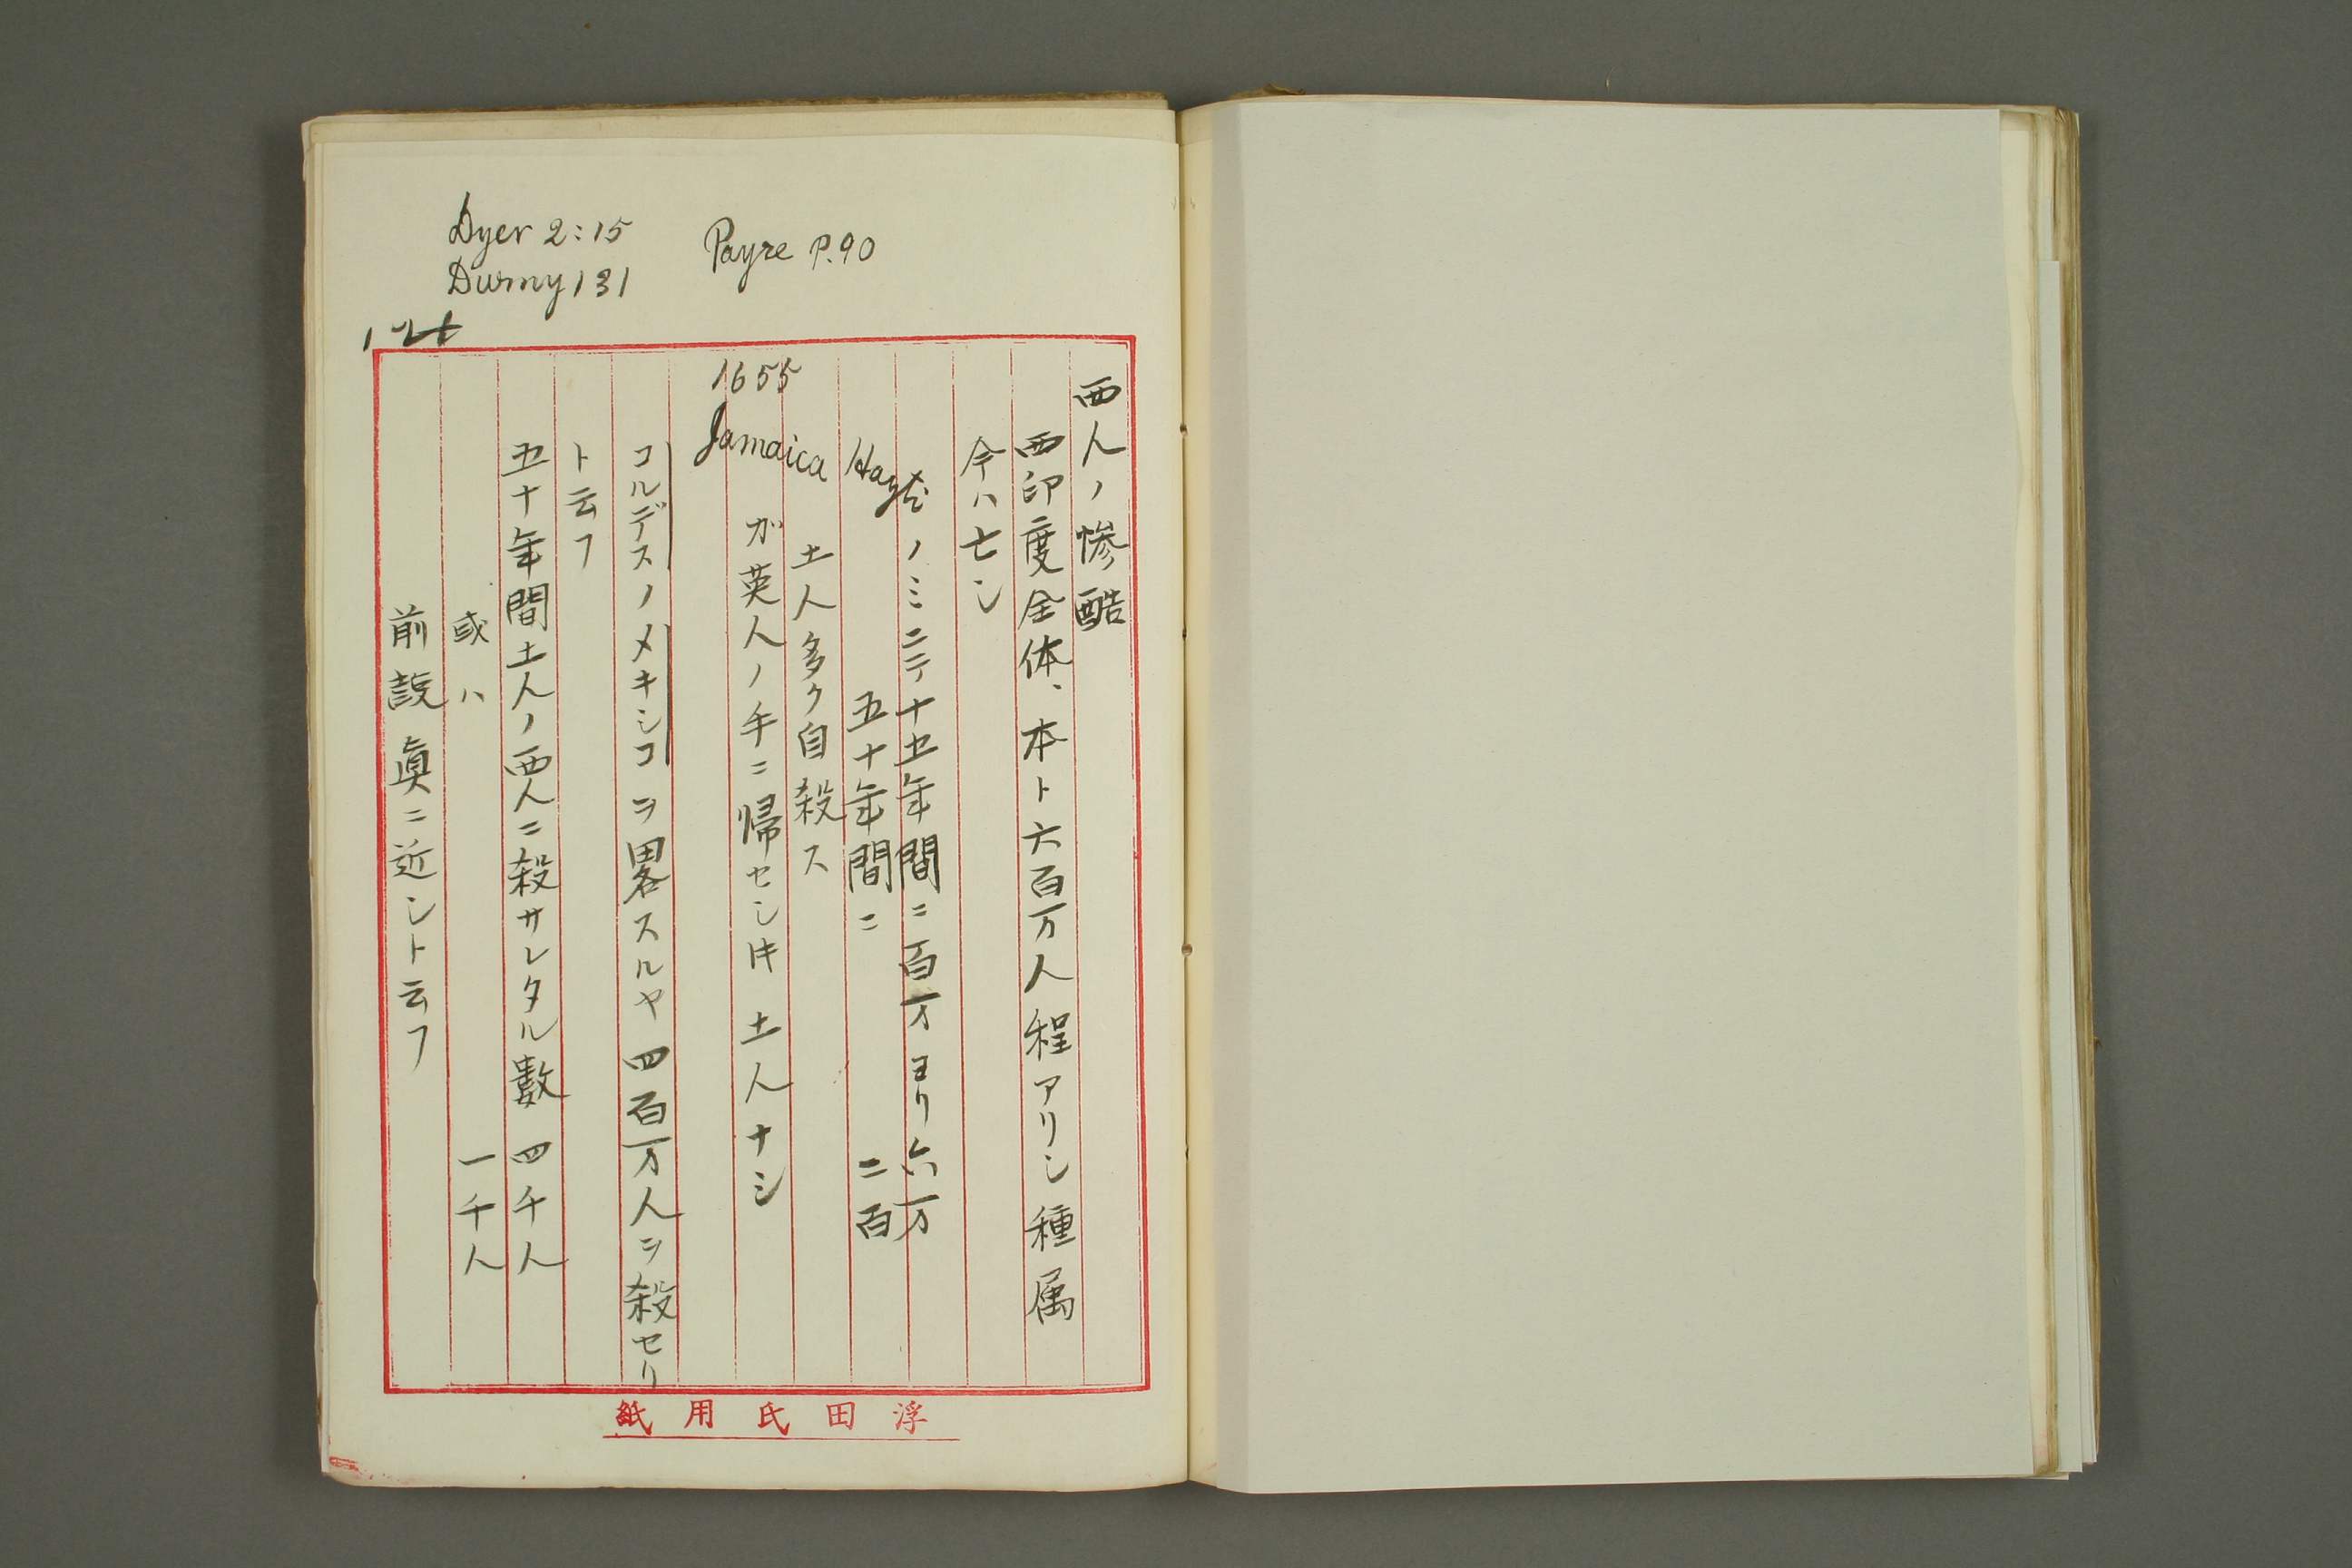 Dyer 2:15
Durny 131
Payre P.90
西人ノ惨酷
西印度全体、本ト六百万人程アリシ種属
今ハ亡シ
Hayti ノミニテ十五年間ニ百万ヨリ六万
五十年間ニ 二百
土人多ク自殺ス
1655
Jamaica
ガ英人ノ手ニ帰セシ時土人ナシ
コルデスノメキシコヲ畧スルヤ四百万人ヲ殺セリ
ト云フ
五十年間土人ノ西人ニ殺サレタル數 四千人
或ハ 一千人
前説眞ニ近シト云フ
浮田氏用紙